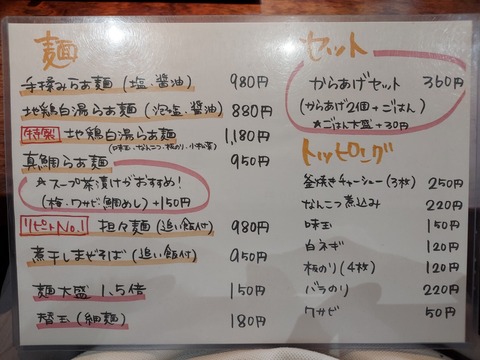 麺
手揉みらぁ麺(塩.醤油) 980円
地鶏白湯らぁ麺(泡塩.醤油) 880円
特製 地鶏白湯らぁ麺 1,180円
(味玉.なんこつ.板のり.小松菜)
真鯛らぁ麺 950円
★スープ茶漬けがおすすめ!
(梅・ワサビ鯛めし)+150円
リピートNo.1 担々麺(追い飯付) 980円
煮干しまぜそば(追い飯付) 950円
麺大盛 1.5倍 150円
替玉(細麺) 180円
セット
からあげセット 360円
(からあげ2個+ごはん)
★ごはん大盛+30円
トッピング
釜焼きチャーシュー(3枚) 250円
なんこつ煮込み 220円
味玉 150円
白ネギ 120円
板のり(4枚) 120円
バラのり 220円
ワサビ 50円